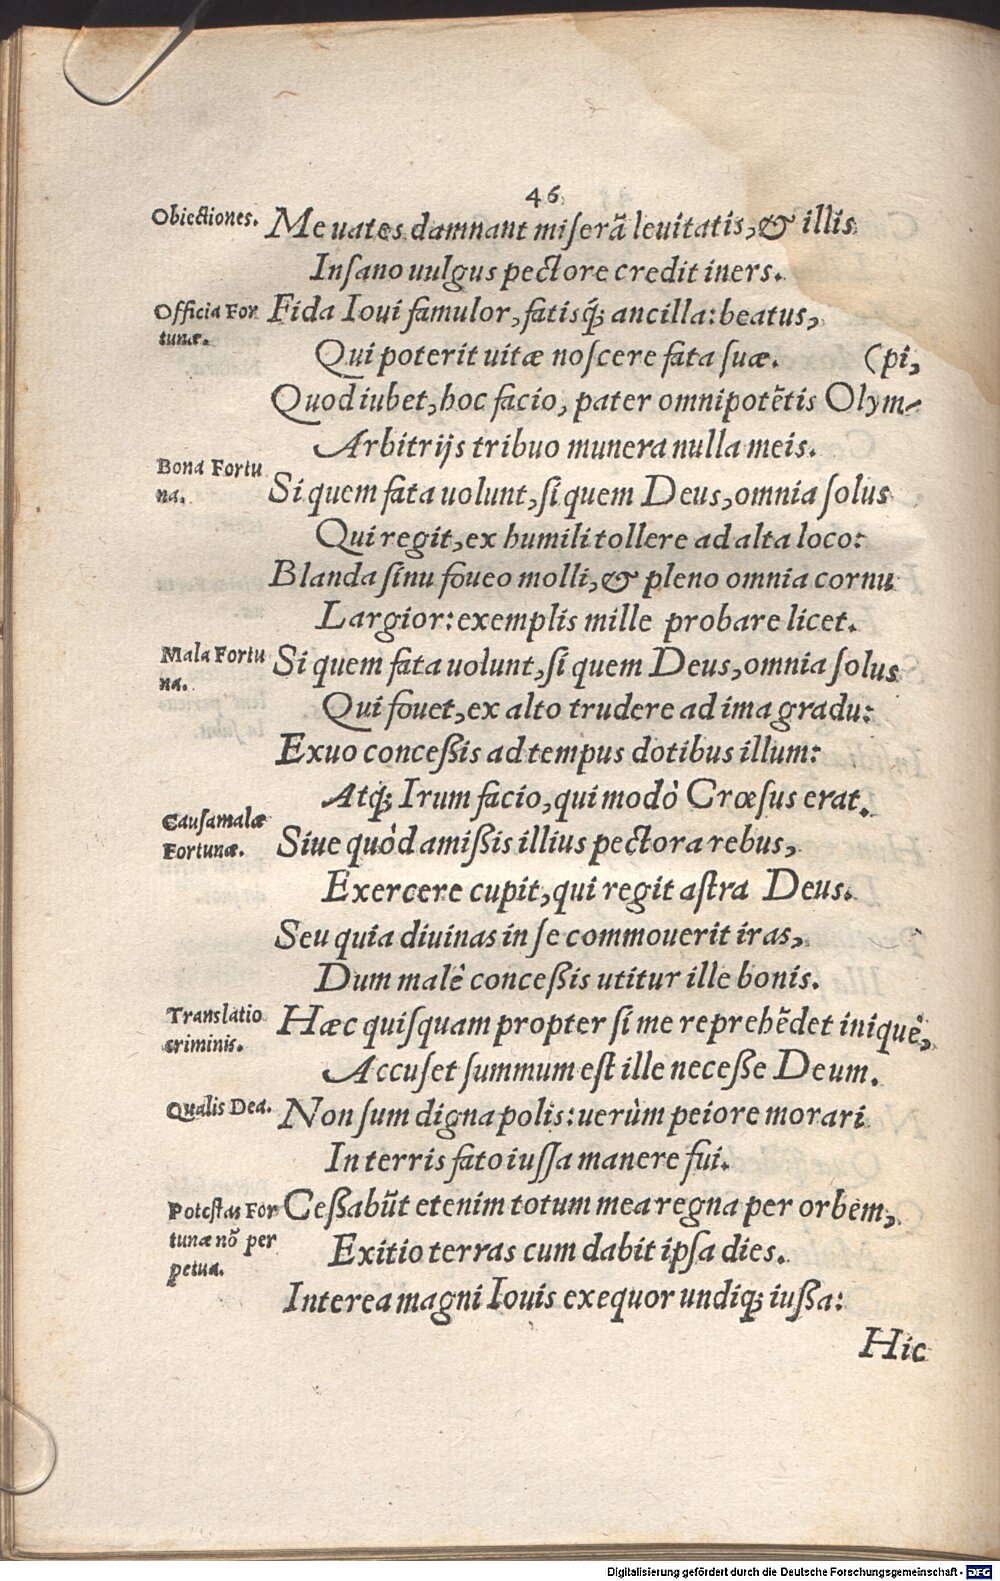 46
Obiectiones. Me uates damnant miserã leuitatis, & illis
Insano uulgus pectore credit iners.
Officia For Fida Ioui famulor, fatisq́; ancilla: beatus,
tunæ. Qui poterit uitæ noscere fata suæ. (pi,
Quod iubet, hoc facio, pater omnipotẽtis Olym-
Arbitrijs tribuo munera nulla meis.
Bona Fortu
na. Si quem fata uolunt, si quem Deus, omnia solus
Qui regit, ex humili tollere ad alta loco:
Blanda sinu foueo molli, & pleno omnia cornu
Largior: exemplis mille probare licet.
Mala Fortu Si quem fata uolunt, si quem Deus, omnia solus
na.
Qui fouet, ex alto trudere ad ima gradu:
Exuo conceßis ad tempus dotibus illum:
Atq́; Irum facio, qui modò Crœsus erat.
Causa malæ
Fortunæ. Siue quòd amißis illius pectora rebus,
Exercere cupit, qui regit astra Deus.
Seu quia diuinas in se commouerit iras,
Dum malè conceßis utitur ille bonis.
Translatio Hæc quisquam propter si me reprehẽdet iniquè,
criminis.
Accuset summum est ille neceße Deum.
Qualis Dea. Non sum digna polis: uerùm peiore morari
In terris fato iussa manere fui.
Potestas For Ceßabũt etenim totum mea regna per orbem,
tunæ nõ per
Exitio terras cum dabit ipsa dies.
petua.
Interea magni Iouis exequor undiq; iußa:
Hic
Digitalisierung gefördert durch die Deutsche Forschungsgemeinschaft - DFG